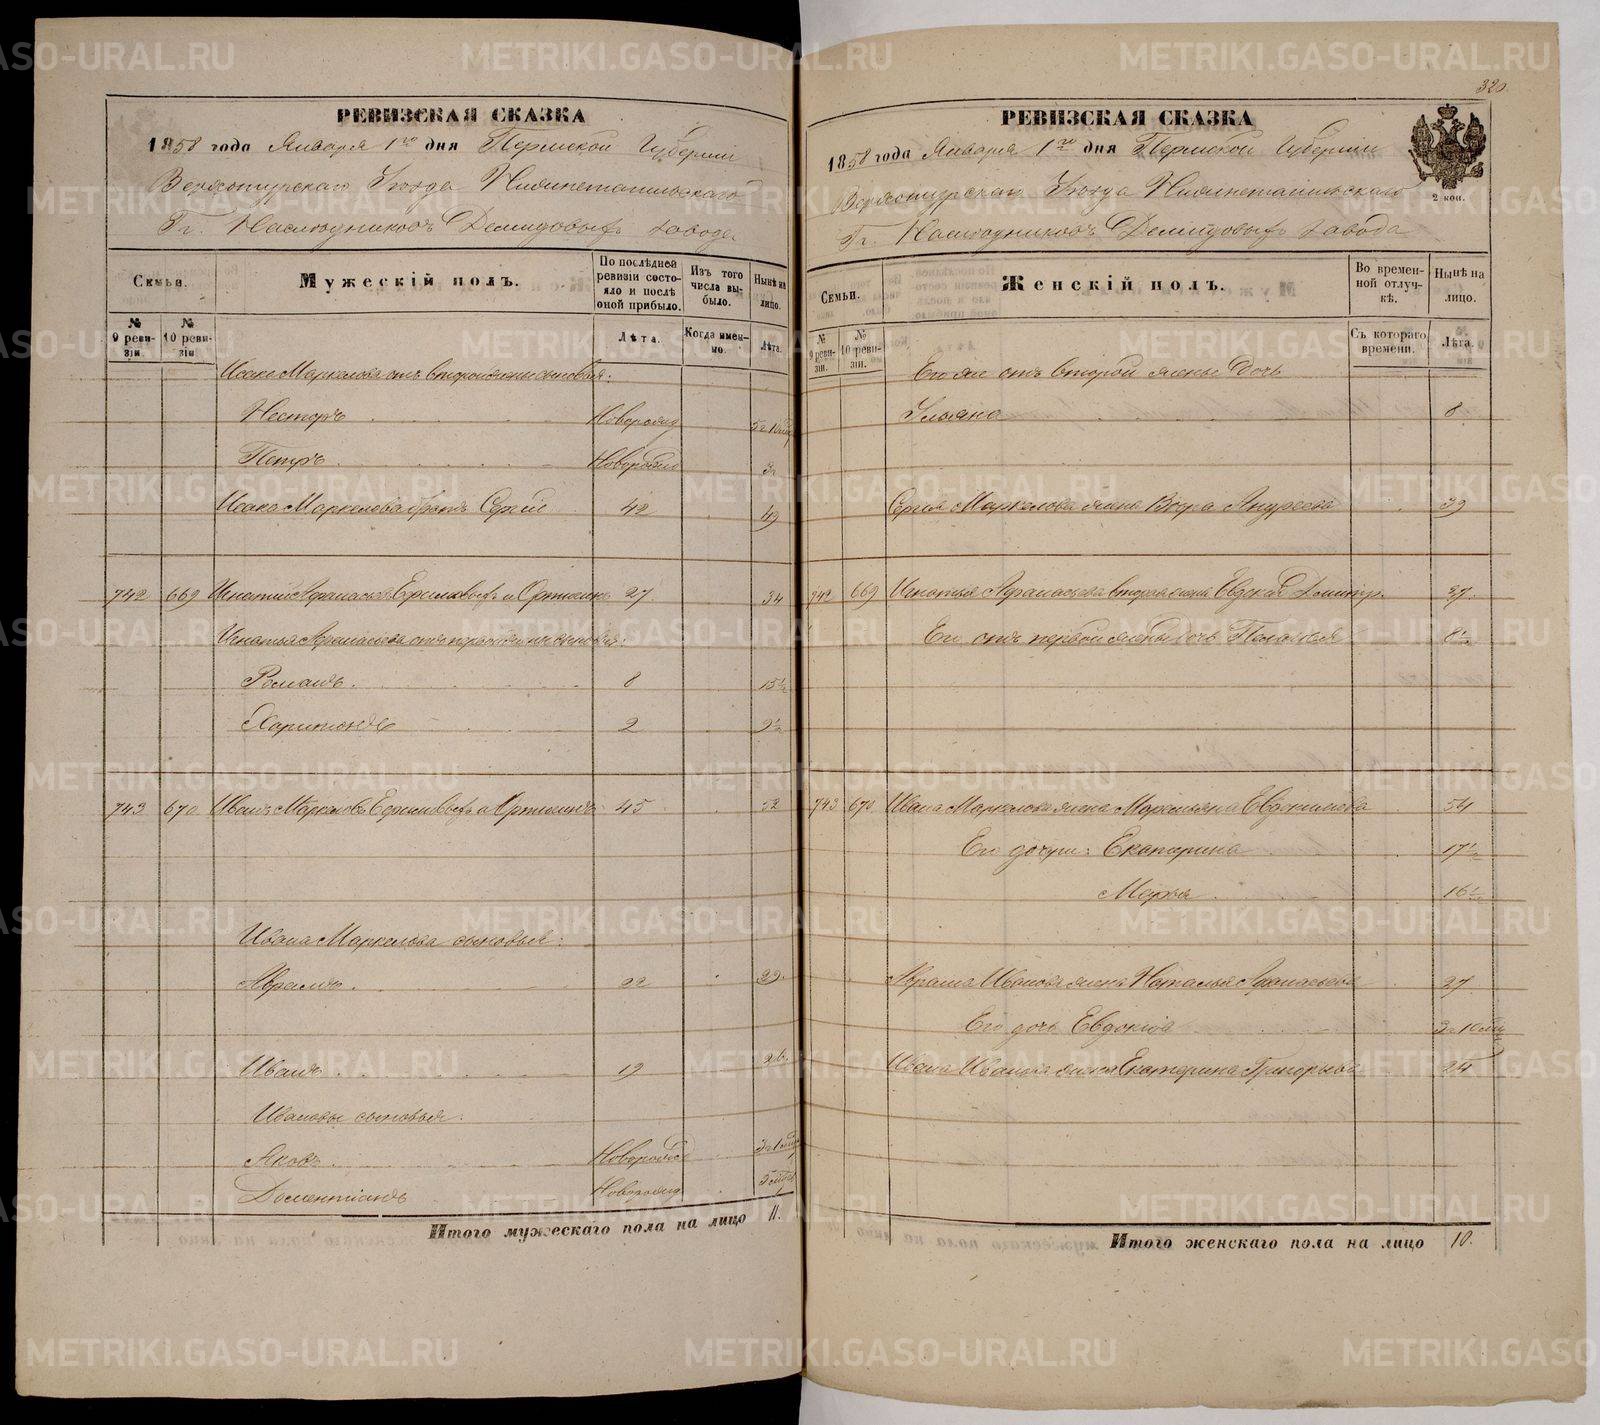 320
РЕВИЗСКАЯ СКАЗКА
1858 года Января 1го дня Пермской Губерніи
Верхотурскаго Уѣзда Нижнетагильскаго
Гг. Наслѣдниковъ Демидовыхъ завода
Семьи.
Мужескій полъ.
По послѣдней ревизіи состояло и послѣ оной прибыло.
Изъ того числа выбыло.
Нынѣ на лицо.
№ 9 ревизіи.
№ 10 ревизіи
Лѣта.
Когда именно.
Лѣта.
Исака Маркелова отъ второй жены сыновья:
Несторъ Новорожд 5 г 10 мѣс
Петръ Новорожд 3 г
Исака Маркелова братъ Сергій 42 49
742 669 Игнатій Афанасьевъ Ермиловыхъ 27 34
Игнатья Афанасьева отъ первой жены сыновья:
Романъ 8 15 1/2
Харитонъ 2 9 1/2
743 670 Иванъ Маркеловъ 45 52
Ивана Маркелова сыновья:
Аврамъ 22 29
Иванъ 19 26
Ивановы сыновья:
Яковъ Новорожд 3 г 1 мѣс
Доментіанъ Новорожд
Итого мужескаго пола на лицо 11.
РЕВИЗСКАЯ СКАЗКА
1858 года Января 1го дня Пермской Губерніи
2 коп.
Верхотурскаго Уѣзда Нижнетагильскаго
Гг. Наслѣдниковъ Демидовыхъ завода
Семьи.
Женскій полъ.
Во временной отлучкѣ.
Нынѣ на лицо.
№ 9 ревизіи.
№ 10 ревизіи.
Съ котораго времени.
Лѣта.
Его же отъ второй жены дочь
Ульяна 8
Сергія Маркелова жена Вѣра Андреева 39
742 669 Игнатья Афанасьева вторая жена Евдокія Дмитр. 37
Его отъ первой жены дочь Пелагья 8 1/2
743 670 Ивана Маркелова жена Маремьяна Евдокимова 54
Его дочери: Екатерина 17 1/2
Марья 16 1/2
Аврама Иванова жена Наталья Афанасьева 27
Его дочь Евдокія 3 г 10 мѣс
Ивана Иванова жена Екатерина Григорьева 25
Итого женскаго пола на лицо 10.
METRIKI.GASO-URAL.RU